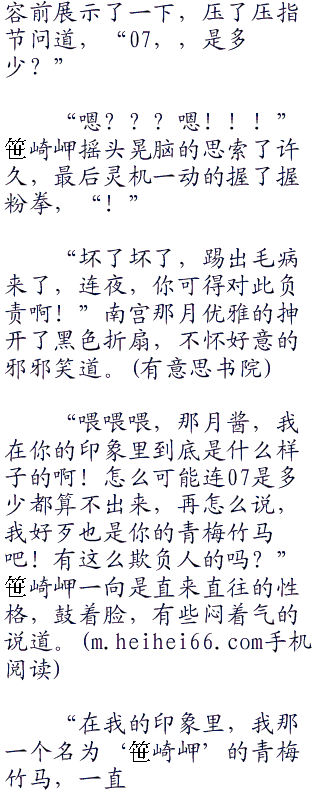 容前展示了一下，压了压指
节问道，“07，，是多
少？”
“嗯？？？嗯！！！”
笹崎岬摇头晃脑的思索了许
久，最后灵机一动的握了握
粉拳，“！”
“坏了坏了，踢出毛病
来了，连夜，你可得对此负
责啊！”南宫那月优雅的抻
开了黑色折扇，不怀好意的
邪邪笑道。(有意思书院)
“喂喂喂，那月酱，我
在你的印象里到底是什么样
子的啊！怎么可能连07是多
少都算不出来，再怎么说，
我好歹也是你的青梅竹马
吧！有这么欺负人的吗？”
笹崎岬一向是直来直往的性
格，鼓着脸，有些闷着气的
说道。(m.heihei66.com手机
阅读)
“在我的印象里，我那
一个名为‘笹崎岬’的青梅
竹马，一直